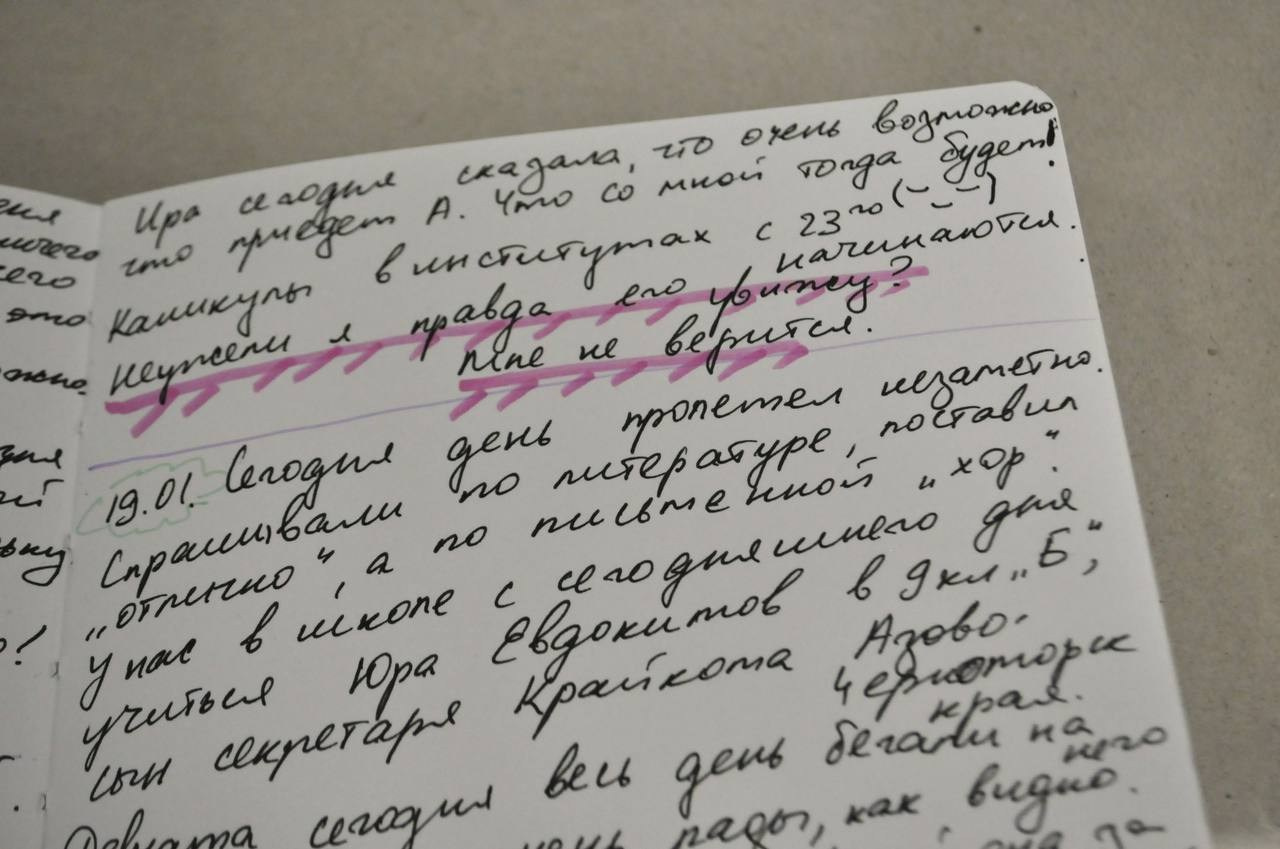 Ира сегодня сказала, что очень возможно
что приедет А. Что со мной тогда будет!
Каникулы в институтах с 23го (-_-)
начинаются.
Неужели я правда его увижу?
Мне не верится.
19.01. Сегодня день пролетел незаметно.
Спрашивали по литературе, поставил
„отлично“, а по письменной „хор“.
У нас в школе с сегодняшнего дня
учиться Юра Евдокимов в 9кл „Б“,
сын секретаря Крайкома Азово-
Черноморск
края.
сегодня весь день бегали на
него
рады, как видно.
за
ничего
сего
это